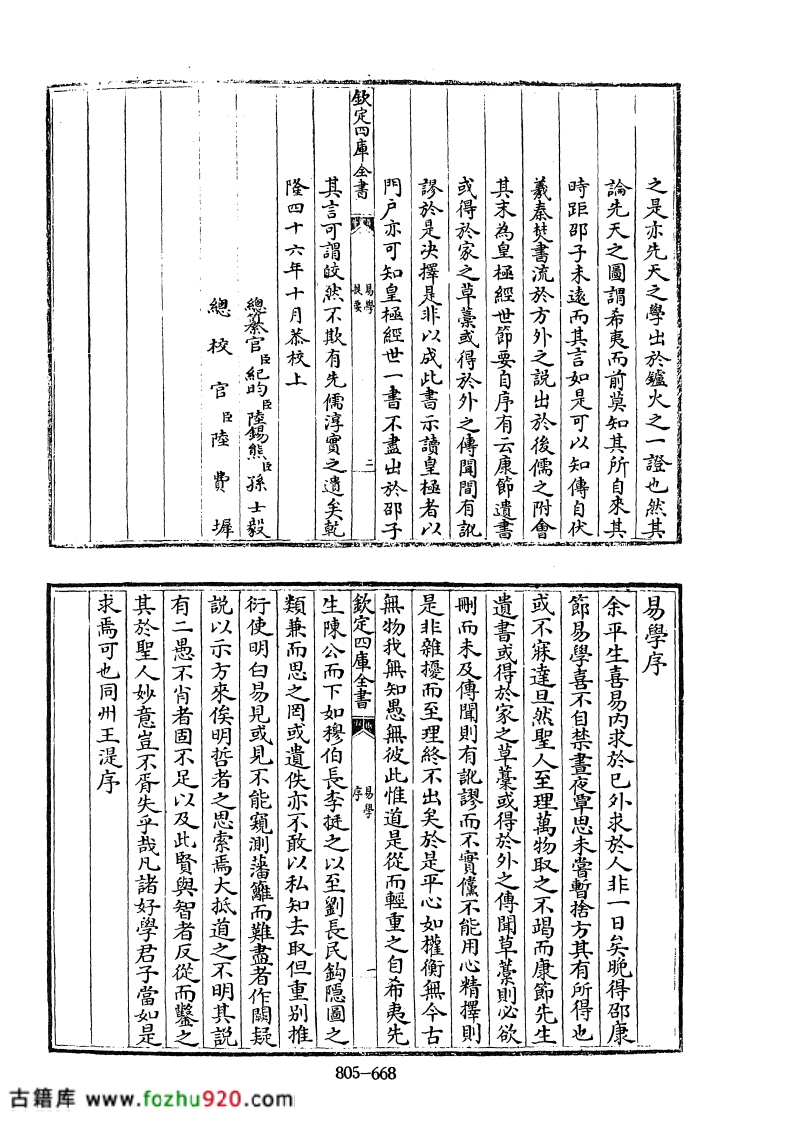 之是亦先天之學出於鑪火之一證也然其
論先天之圖謂希夷而前莫知其所自來其
時距邵子未遠而其言如是可以知傳自伏
羲秦焚書流於方外之說出於後儒之附會
其末為皇極經世節要自序有云康節遺書
或得於家之草藁或得於外之傳聞間有訛
謬於是决擇是非以成此書示讀皇極者以
門户亦可知皇極經世一書不盡出於邵子
欽定四庫全書
易學
提要
二
其言可謂皎然不欺有先儒淳實之遺矣乾
隆四十六年十月恭校上
總纂官臣紀昀臣陸錫熊臣孫士毅
總校官臣陸費墀
易學序
余平生喜易内求於已外求於人非一日矣晚得邵康
節易學喜不自禁晝夜覃思未嘗暫捨方其有所得也
或不寐達旦然聖人至理萬物取之不竭而康節先生
遺書或得於家之草藁或得於外之傳聞草藁則必欲
刪而未及傳聞則有訛謬而不實儻不能用心精擇則
是非雜擾而至理終不出矣於是平心如權衡無今古
無物我無知愚無彼此惟道是從而輕重之自希夷先
欽定四庫全書
易學
序
一
生陳公而下如穆伯長李挺之以至劉長民鈎隱圖之
類兼而思之罔或遺佚亦不敢以私知去取但重别推
衍使明白易見或見不能窺測藩籬而難盡者作闕疑
說以示方來俟明哲者之思索焉大抵道之不明其說
有二愚不肖者固不足以及此賢與智者反從而鑿之
其於聖人妙意豈不胥失乎哉凡諸好學君子當如是
求焉可也同州王湜序
805-668
古籍库 www.fozhu920.com